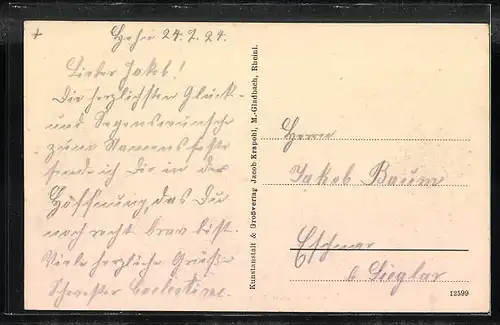 24.2.24.
Lieber Jakob!
Die herzlichsten Glück-
und Segenswünsche
zum Namensfeste
sende ich Dir in der
Hoffnung, das Du
noch recht brav bist.
Viele herzliche Grüße
Schwester Coelestine.
Kunstanstalt & Großverlag Jacob Krapohl, M.-Gladbach, Rheinl.
Herrn
Jakob Baum
Eschmar
b. Sieglar
12599